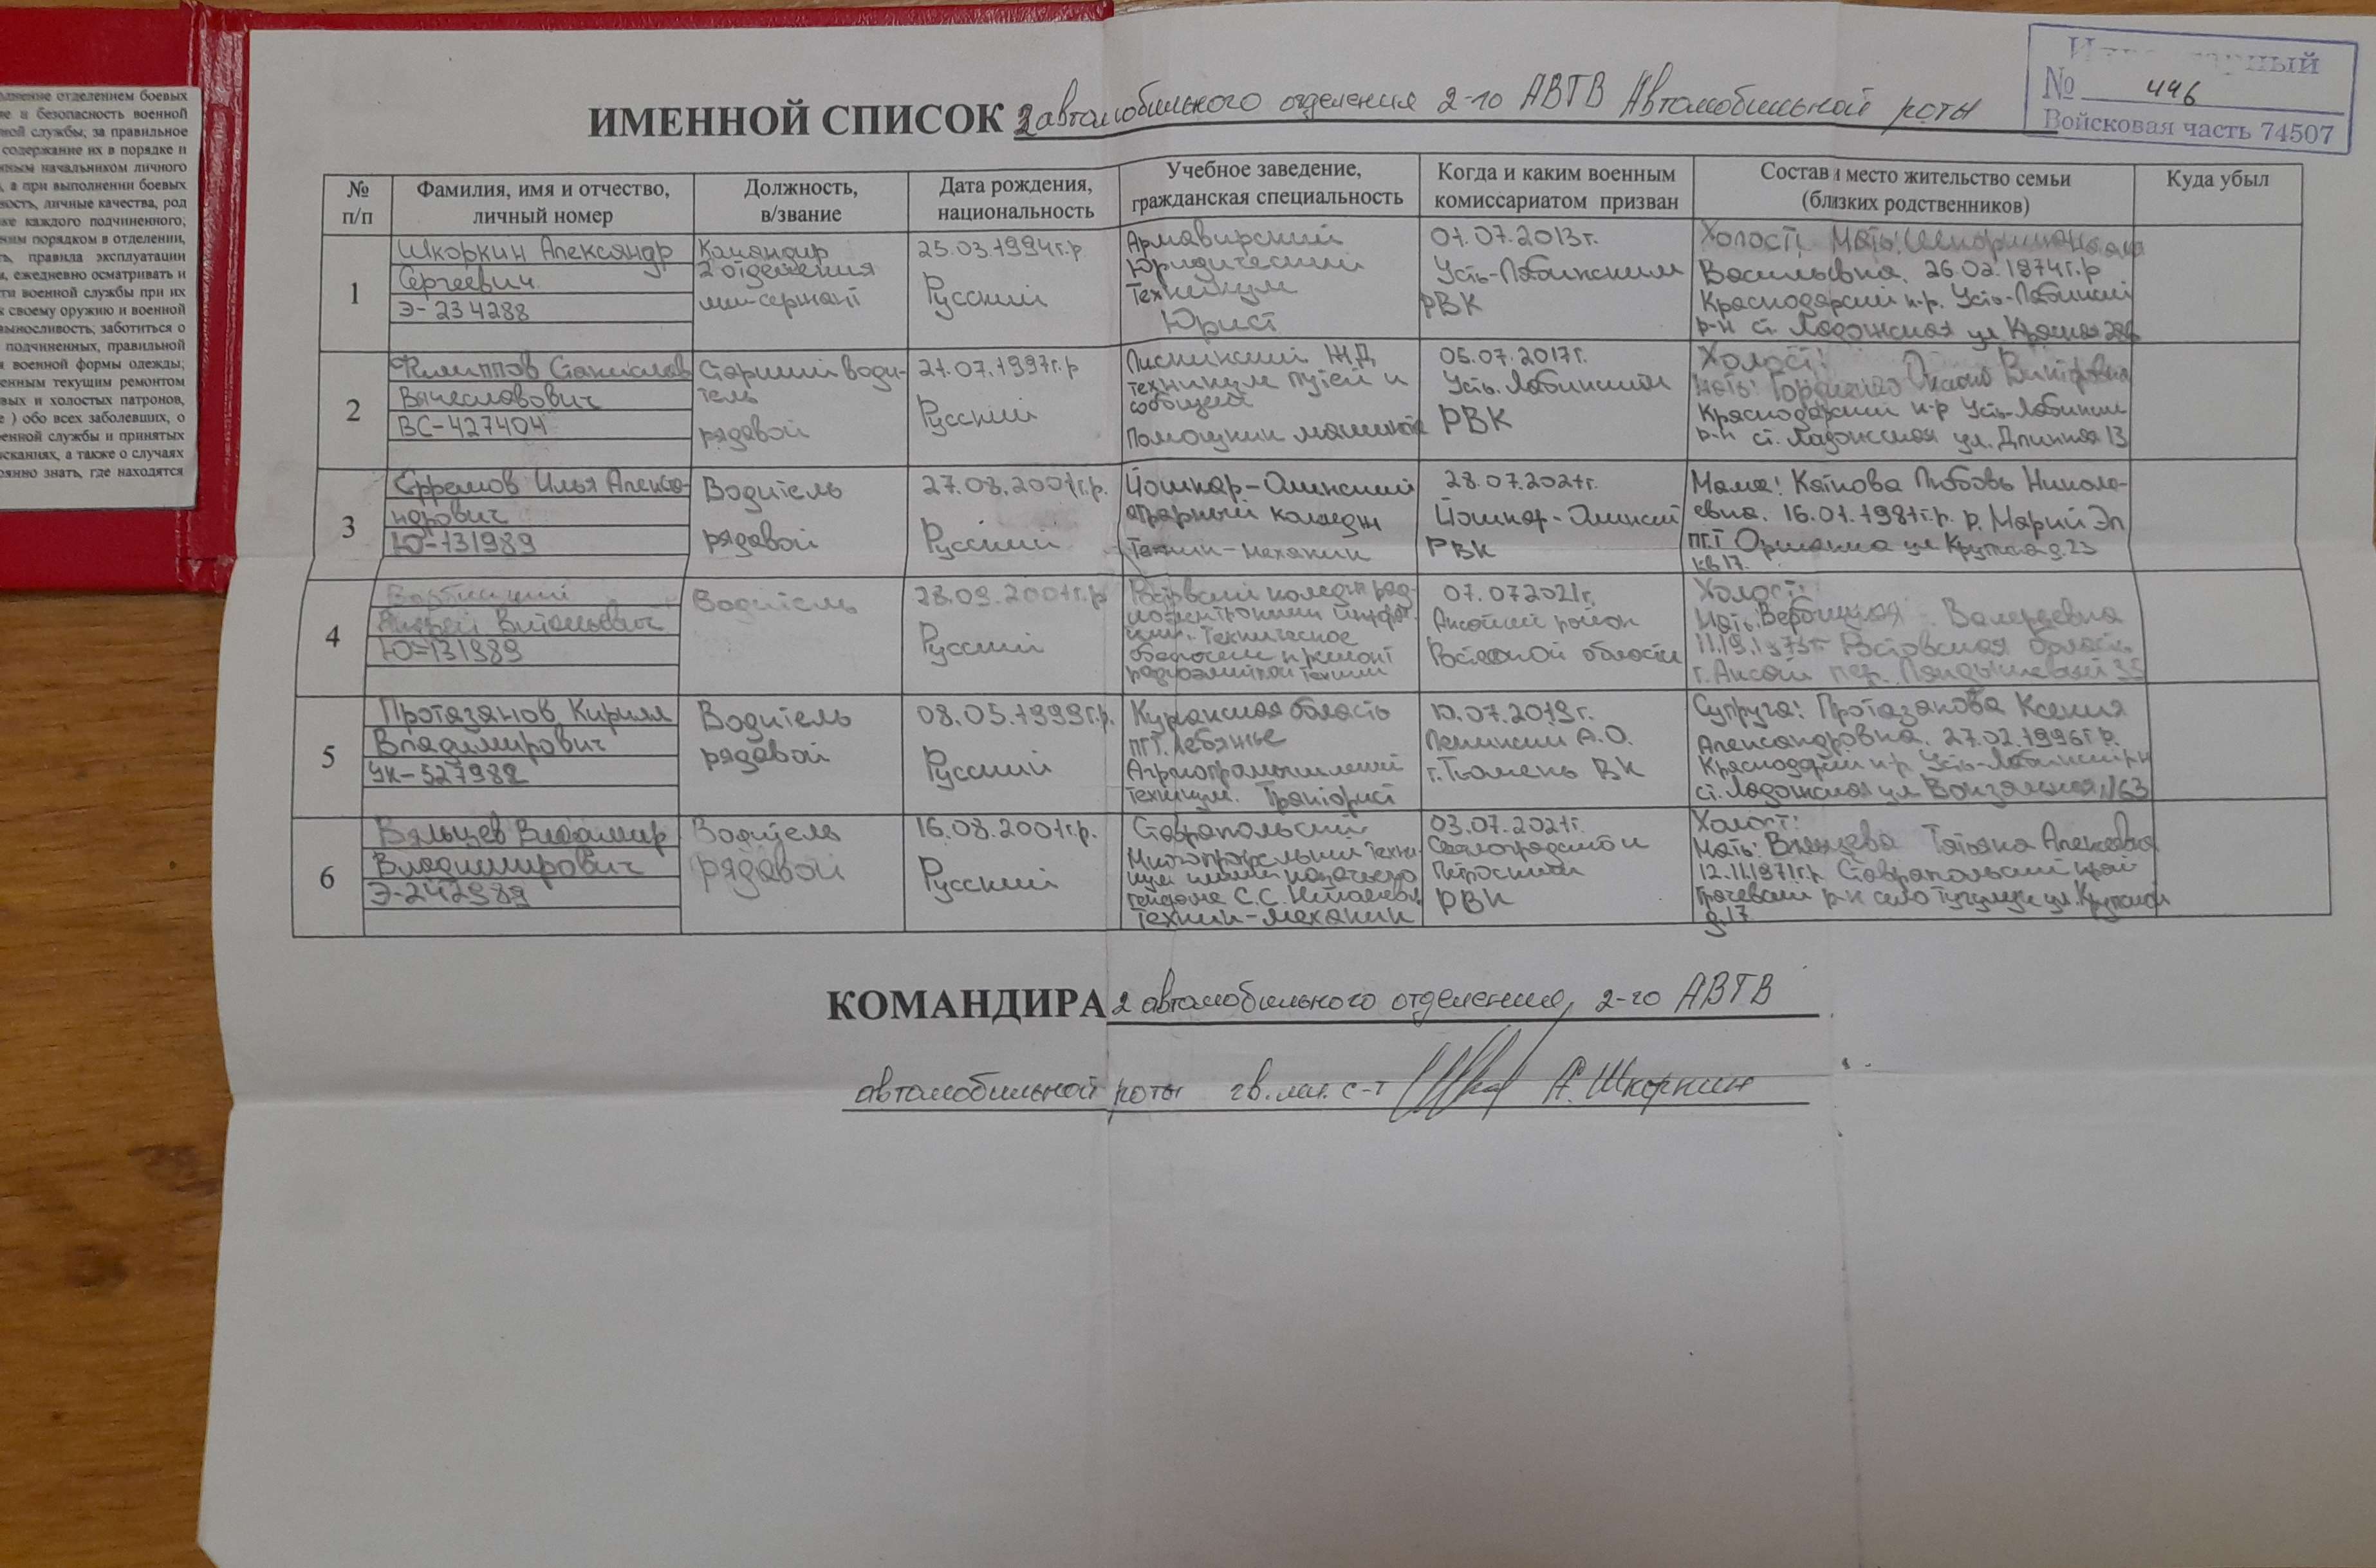 лнение отделением боевых
ие и безопасность военной
ной службы, за правильное
содержание их в порядке и
нным начальником личного
, а при выполнении боевых
ность, личные качества, род
же каждого подчиненного;
ним порядком в отделении,
ть, правила эксплуатации
а, ежедневно осматривать и
сти военной службы при их
к своему оружию и военной
выносливость, заботиться о
подчиненных, правильной
я военной формы одежды;
енным текущим ремонтом
вых и холостых патронов,
е ) обо всех заболевших, о
енной службы и принятых
сканиях, а также о случаях
оянно знать, где находятся
№ 446
Войсковая часть 74507
ИМЕННОЙ СПИСОК 2 автомобильного отделения 2-го АВТВ Автомобильной роты
№ п/п
Фамилия, имя и отчество,
личный номер
Должность,
в/звание
Дата рождения,
национальность
Учебное заведение,
гражданская специальность
Когда и каким военным
комиссариатом призван
Состав и место жительство семьи
(близких родственников)
Куда убыл
1
Шкоркин Александр
Сергеевич
Э-234288
Командир
2 отделения
мл-сержант
25.03.1994г.р
Русский
Армавирский
Юридический
Техникум
Юрист
01.07.2013г.
Усть-Лабинским
РВК
Холост, Мать:
Васильевна. 26.02.1974г.р
Краснодарский к-р. Усть-Лабинский
р-н ст. Ладожская ул Красная
2
Филиппов Станислав
Вячеславович
ВС-427404
Старший води-
тель
рядовой
21.07.1997г.р
Русский
ЖД
техникум путей и
сообщен
Помощник машинис
05.07.2017г.
Усть-Лабинским
РВК
Холост:
Мать: Викторовна
Краснодарский к-р Усть-Лабинский
р-н ст. Ладожская ул. Длинная 13
3
Ефремов Илья Алекса-
ндрович
Ю-131989
Водитель
рядовой
27.08.2001г.р.
Русский
Йошкар-Олинский
аграрный колледж
Техник-механик
28.07.2021г.
Йошкар-Олинский
РВК
Мама: Каткова Любовь Никола-
евна. 16.01.1981г.р. р. Марий Эл
пгт Оршанка ул Крупская д.23
кв 17.
4
Андрей Витальевич
Ю-131989
Водитель
28.09.2001г.р
Русский
Ростовский колледж рад-
Техническое
07.07.2021г.
Аксайский район
Ростовской области
Холост:
Мать: Валерьевна
Ростовская область
г. Аксай пер. 35
5
Протазанов Кирилл
Владимирович
УК-527982
Водитель
рядовой
08.05.1999г.р.
Русский
Курганская область
пгт. Лебяжье
Агропромышленный
техникум. Тракторист
10.07.2019г.
Ленинский А.О.
г. Тюмень ВК
Супруга: Протазанова Ксения
Александровна. 27.02.1996г.р.
Краснодарский к-р Усть-Лабинский р-н
ст. Ладожская ул Вокзальная 163
6
Вяльцев Владимир
Владимирович
Э-242989
Водитель
рядовой
16.08.2001г.р.
Русский
Ставропольский
техни-
кум имени казачьего
генерала С.С. Николаева
Техник-механик
03.07.2021г.
Петровским
РВК
Холост:
Мать: Вяльцева Татьяна Алексеевна
12.11.1971г.р. Ставропольский край
Грачевский р-н село Тугулук ул. Крупской
д.17
КОМАНДИРА 2 автомобильного отделения, 2-го АВТВ
автомобильной роты гв. мл. с-т А. Шкоркин